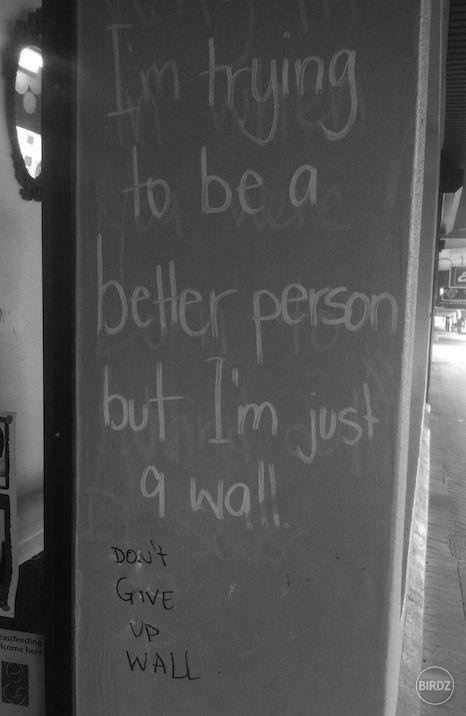 I'm trying
to be a
better person
but I'm just
a wall.
DON'T
GIVE
UP
WALL.
eastfeeding
lcome here
BIRDZ